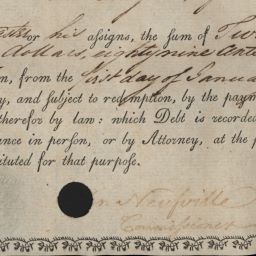 or his assigns, the sum of
dollars, eighty nine Cents
n, from the first day of Janua
y, and subject to redemption, by the paym
therefor by law: which Debt is recorded
ance in perſon, or by Attorney, at the p
tituted for that purpoſe.
Jn. Neufville
Commissioner